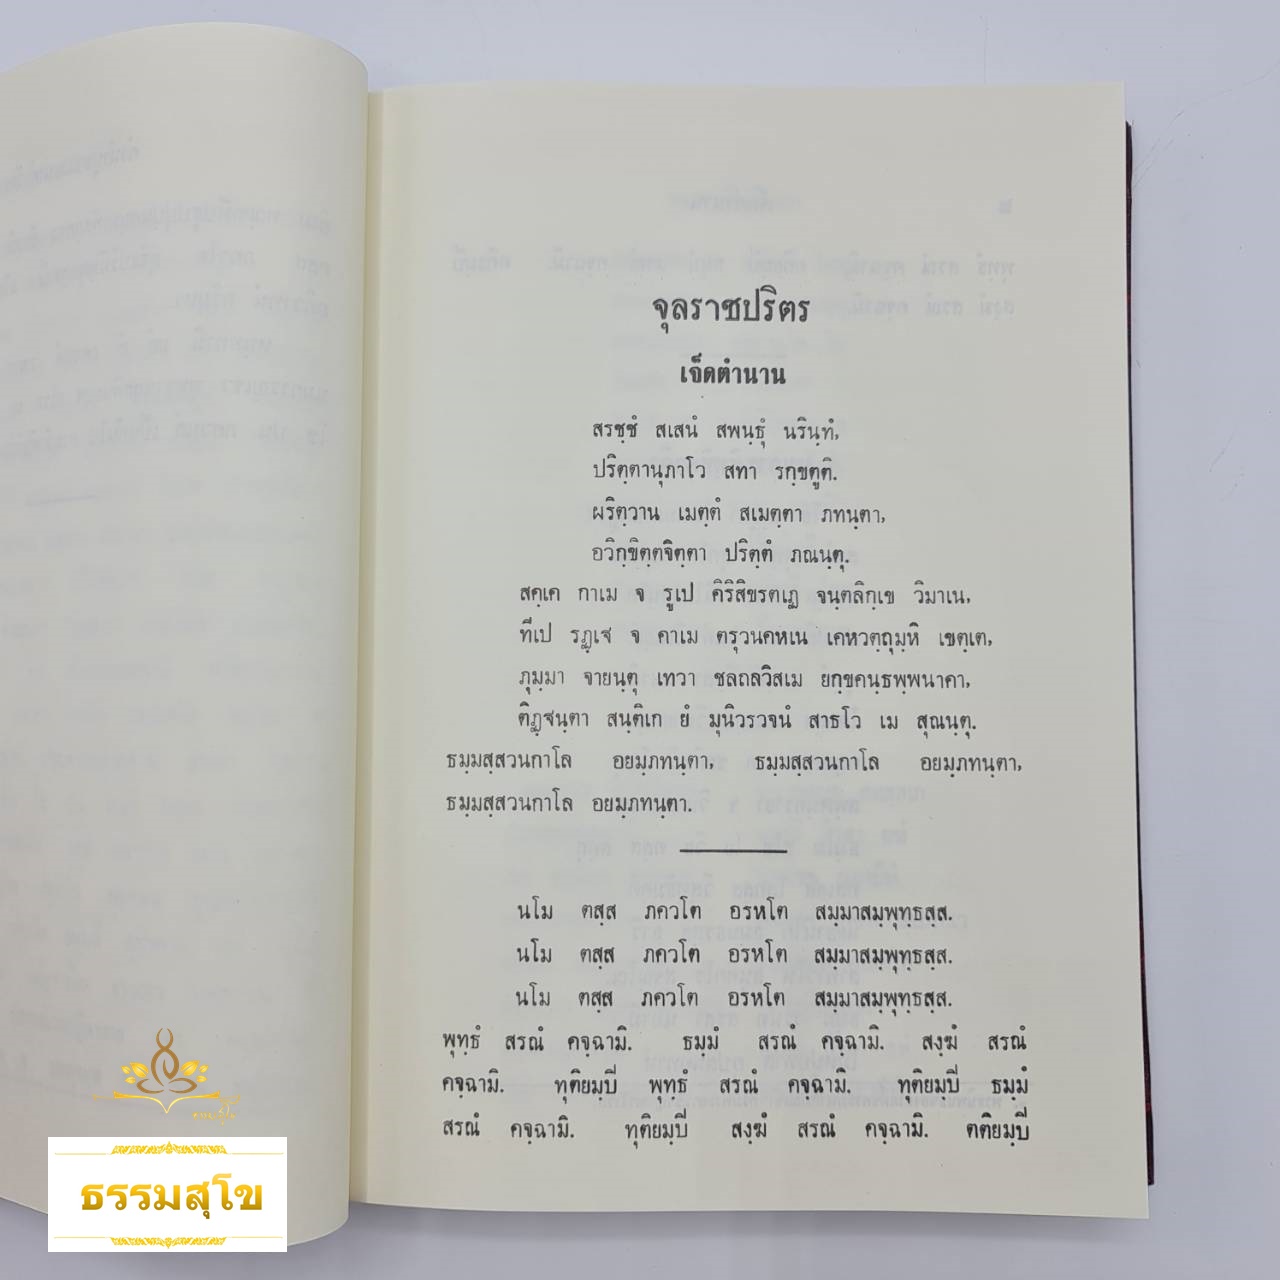 จุลราชปริตร
เจ็ดตำนาน
สรชฺชํ สเสนํ สพนฺธุํ นรินฺทํ,
ปริตฺตานุภาโว สทา รกฺขตูติ.
ผริตฺวาน เมตฺตํ สเมตฺตา ภทนฺตา,
อวิกฺขิตฺตจิตฺตา ปริตฺตํ ภณนฺตุ.
สคฺเค กาเม จ รูเป คิริสิขรตเฏ จนฺตลิกฺเข วิมาเน,
ทีเป รฏฺเฐ จ คาเม ตรุวนคหเน เคหวตฺถุมฺหิ เขตฺเต,
ภุมฺมา จายนฺตุ เทวา ชลถลวิสเม ยกฺขคนฺธพฺพนาคา,
ติฏฺฐนฺตา สนฺติเก ยํ มุนิวรวจนํ สาธโว เม สุณนฺตุ.
ธมฺมสฺสวนกาโล อยมฺภทนฺตา, ธมฺมสฺสวนกาโล อยมฺภทนฺตา,
ธมฺมสฺสวนกาโล อยมฺภทนฺตา.
นโม ตสฺส ภควโต อรหโต สมฺมาสมฺพุทฺธสฺส.
นโม ตสฺส ภควโต อรหโต สมฺมาสมฺพุทฺธสฺส.
นโม ตสฺส ภควโต อรหโต สมฺมาสมฺพุทฺธสฺส.
พุทฺธํ สรณํ คจฺฉามิ. ธมฺมํ สรณํ คจฺฉามิ. สงฺฆํ สรณํ
คจฺฉามิ. ทุติยมฺปี พุทฺธํ สรณํ คจฺฉามิ. ทุติยมฺปี ธมฺมํ
สรณํ คจฺฉามิ. ทุติยมฺปี สงฺฆํ สรณํ คจฺฉามิ. ตติยมฺปี
ธรรมสุโข